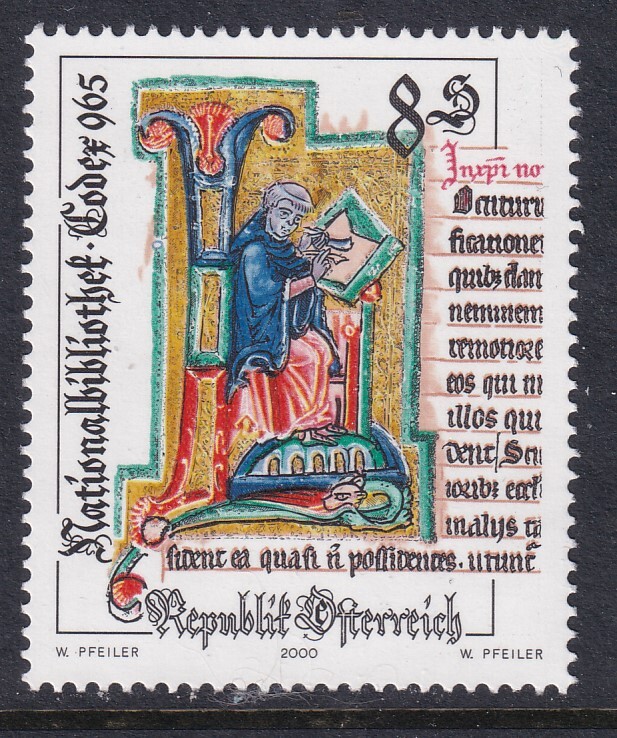 Nationalbibliothek · Codex 965
8 S
Inxpi no
ficatione
quibz dam
neminem
remotiore
eos qui
illos qui
dent Scti
malijs ta
sident ea quasi n possidentes. utunt
Republik Österreich
W. PFEILER 2000 W. PFEILER